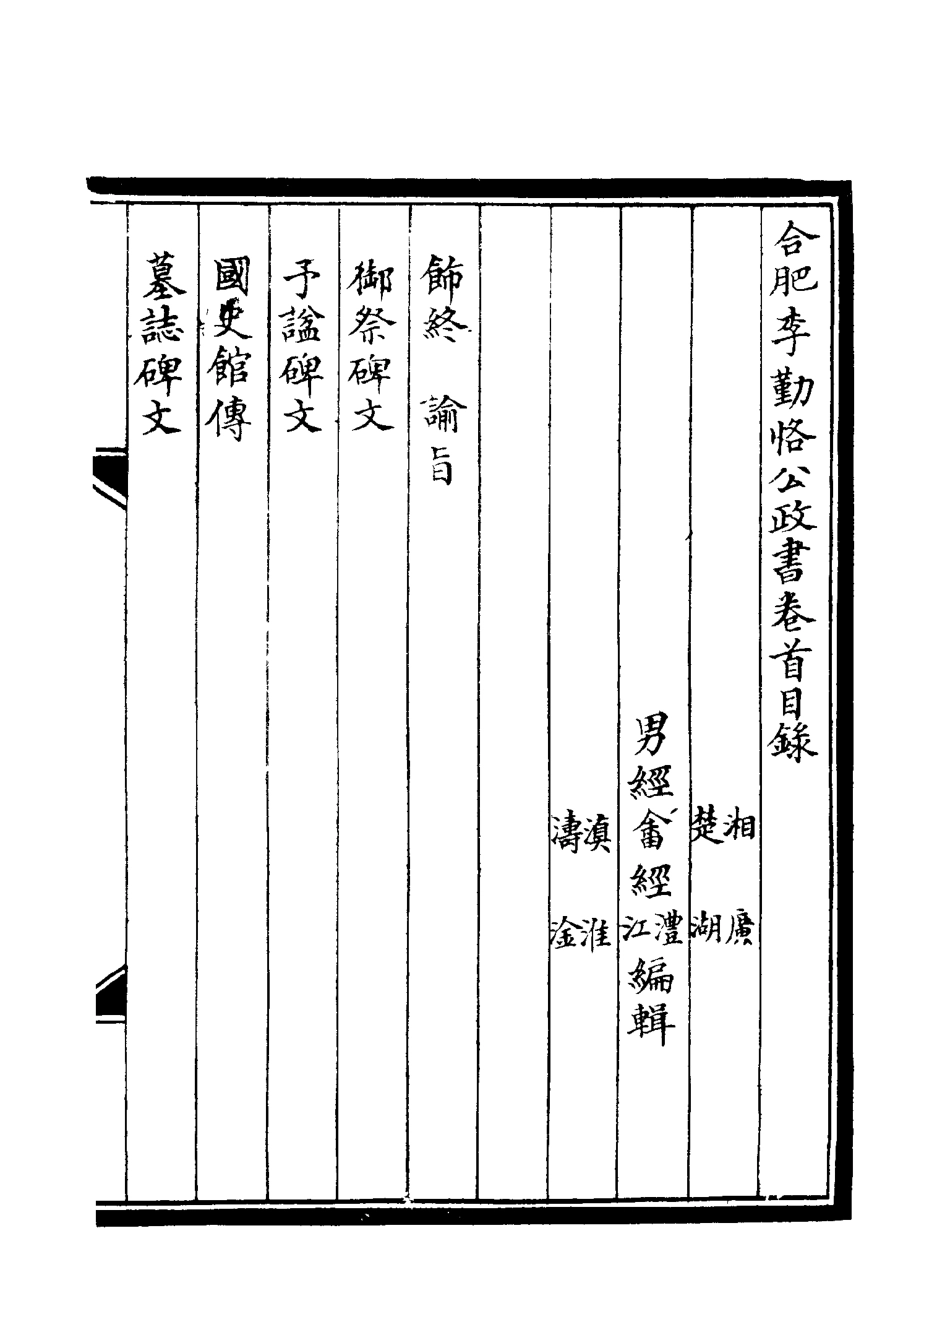 合肥李勤恪公政書卷首目錄
湘　廣
楚　湖
男經畬經澧江編輯
滇　淮
濤　淦
飾終　諭旨
御祭碑文
予謚碑文
國史館傳
墓誌碑文